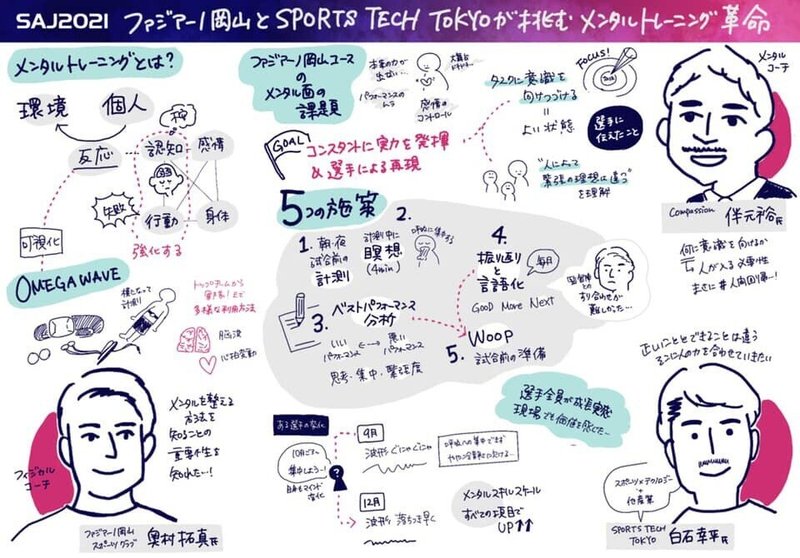 SAJ2021 ファジアーノ岡山とSPORTS TECH TOKYOが挑む メンタルトレーニング革命
メンタルトレーニングとは?
環境 個人
反応
不安
認知 感情
失敗
行動 身体
可視化
強化する
OMEGAWAVE
横になって
計測
トップチームから
多様な利用方法
脳波
心拍変動
フィジカル
コーチ
メンタルを整える
方法を
知ることの
重要性を
知れた…!
ファジアーノ岡山
スポーツクラブ
奥村拓真氏
ファジアーノ岡山ユース
の
メンタル面の
課題
本来の力が
出せない…
パフォーマンスの
ムラ
感情の
コントロール
GOAL
コンスタントに実力を発揮
&選手による再現
タスクに意識を
向けつづける
=
よい状態
FOCUS!
選手に
伝えたこと
"人によって
緊張の理想は違う"
を理解
メンタル
コーチ
Compassion
伴元裕氏
何に意識を向けるか
人が入る必要性
まさに #人間回帰…!
5つの施策
1. 朝・夜
試合前の
計測
2.
計測中に
瞑想
(4min)
呼吸に集中する
3. ベストパフォーマンス
分析
いい
パフォーマンス
悪い
パフォーマンス
思考・集中・緊張度
4.
振り返り
と
言語化
毎月
GOOD More Next
監督陣との
すり合わせが
難しかった…
5. WOOP
試合前の準備
選手全員が成長実感
現場でも価値を感じた…
ある選手の変化
10月ごろ
集中しよう…!
4月
波形ぐにゃぐにゃ
12月
波形 落ちつき早く
メンタルスキルスケール
すべての項目で
UP↑↑
正しいこととできることは違う
そこに人の力を合わせていきたい
スポーツ×テクノロジー
+
他産業
SPORTS TECH
TOKYO
白石幸平氏